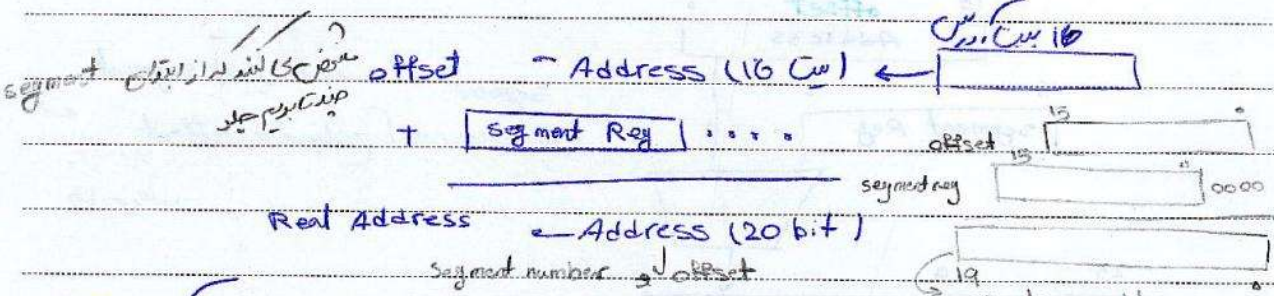 ۱۶ بیت آدرس
مشخص می کنند که از ابتدای segment
چندتا بریم جلو
offset - Address (16 بیت) ←
+ segment Reg 0000
15 0
offset
15 0
segment reg 0000
Real Address ← Address (20 bit)
segment number و offset
19 0